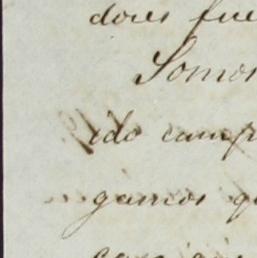 dores fue
Somos
ido camp
gamos q